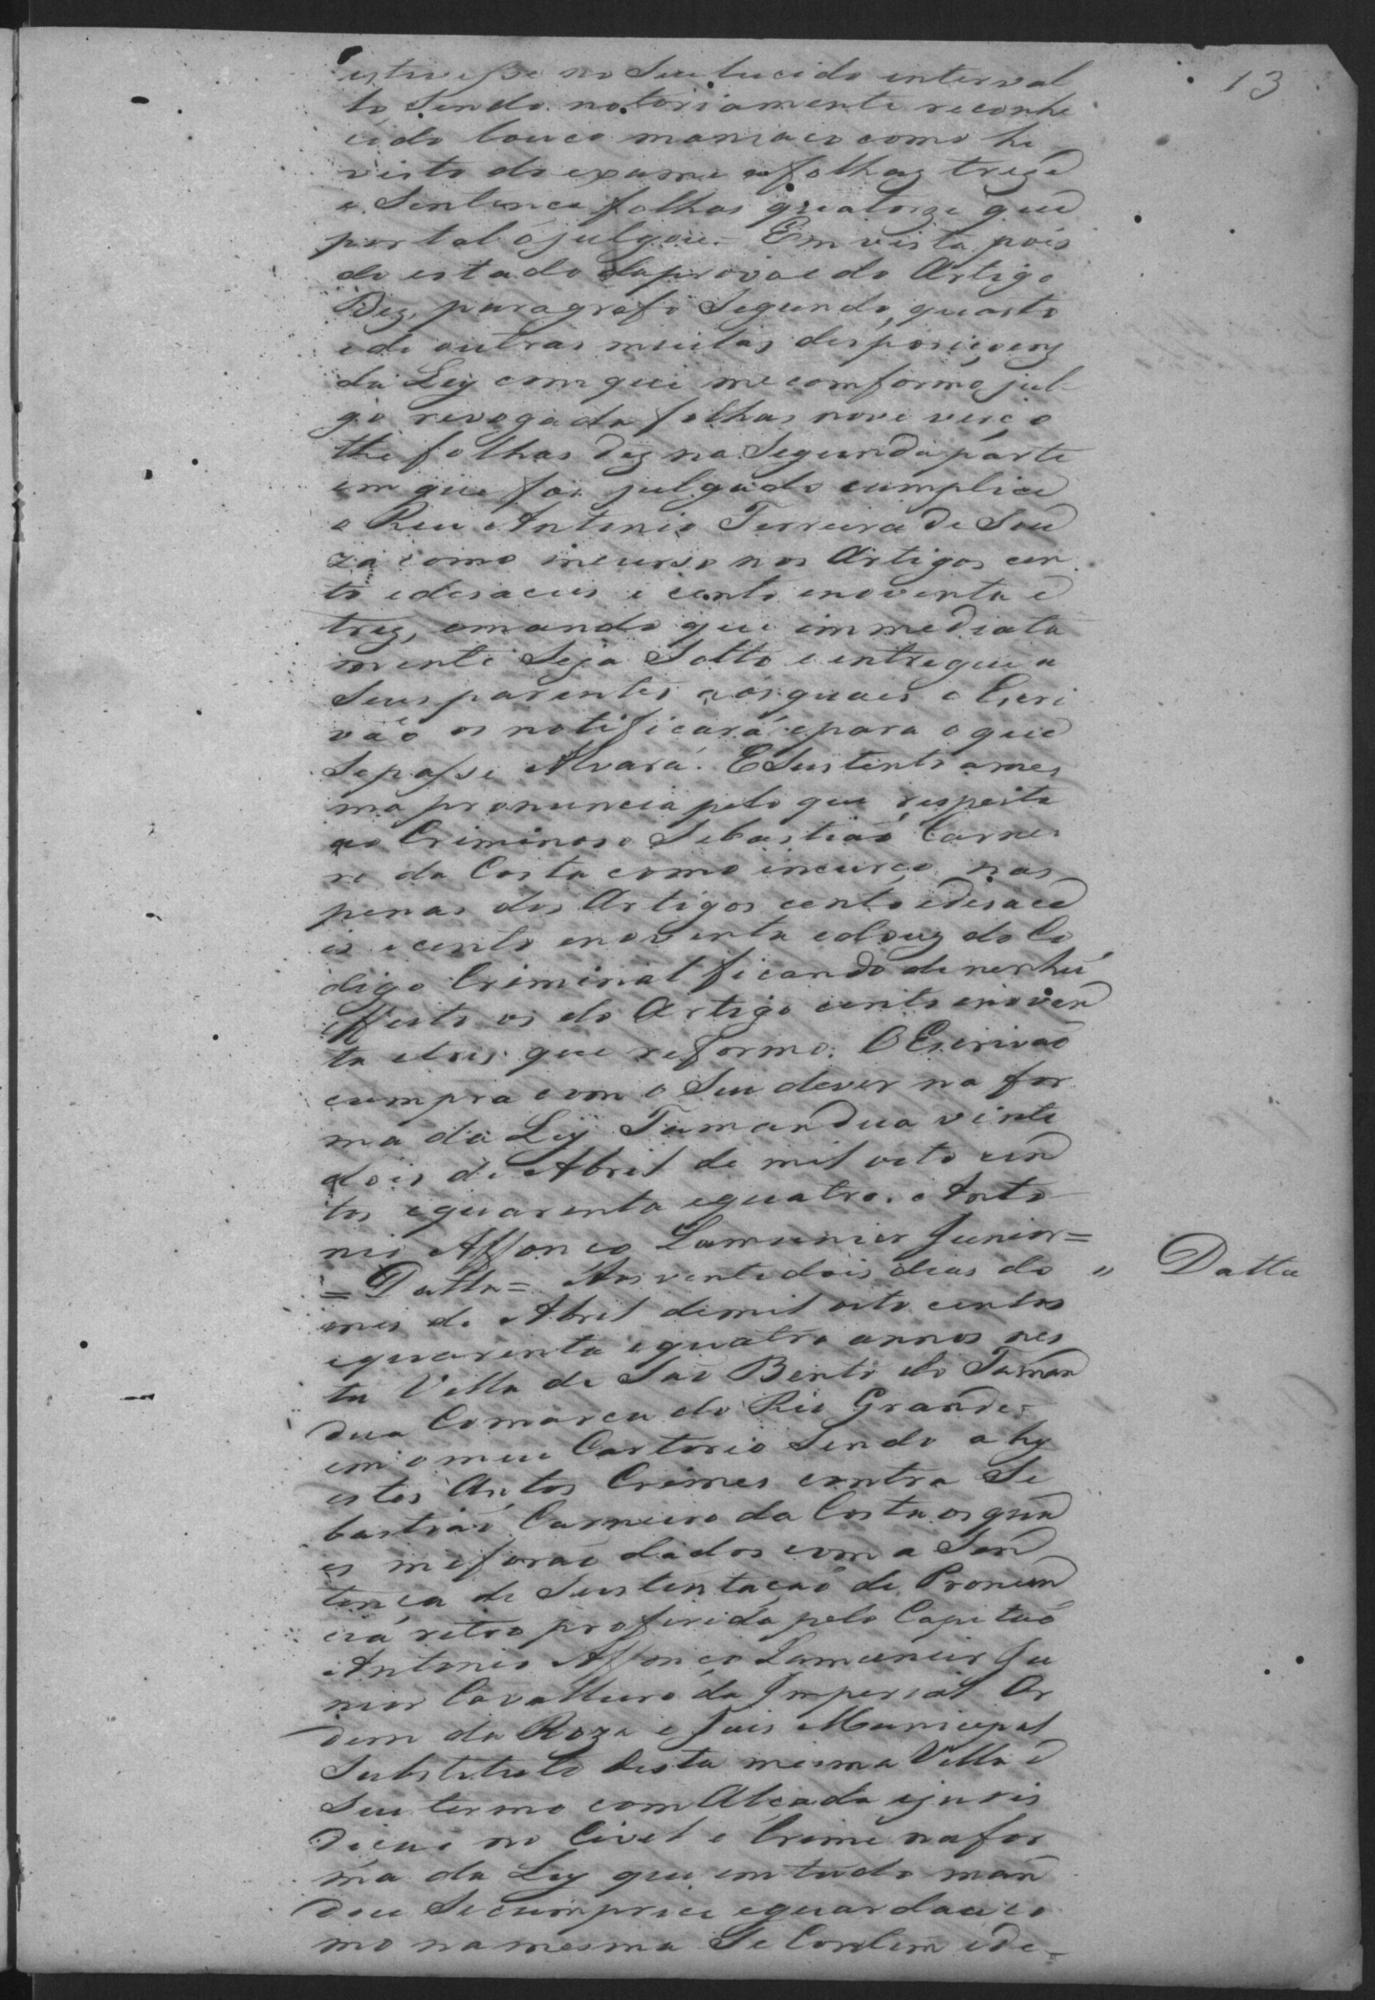 13
estivesse no Seu lucido interval
lo, Sendo notoriamente reconhe
cido louco maniaco como he
visto do exame a folhas treze
e Sentença folhas quatorze que
por tal o julgou = Em vista pois
do estado da prova e do Artigo
Dez, paragrafo Segundo, quarto
e de outras muitas dispoziçoens
da Ley com que me comformo jul-
go revogada folhas nove verço
the folhas dez na Segunda parte
em que foi julgado cumplice
o Reu Antonio Ferreira de Sou
za como incurso nos Artigos cen
to e desaceis e cento enoventa e
trez, emando que immediata
mente Seja Solto e entregue a
Seus parentes aos quaes o Escri
vão os notificará e para o que
Sepasse Alvará. E Sustento ames
ma pronuncia pelo que respeita
ao Criminoso Sebastião Carnei
ro da Costa como incurço nas
penas dos Artigos cento e desace
is e cento enoventa e dous do Co
digo Criminal ficando de nenhú
effeito os do Artigo cento enoven
ta e tres que reformo. O Escrivão
cumpra com o Seu dever na for
ma da Ley Tamandua vinte
dois de Abril de mil oito cen
tos e quarenta e quatro. Anto
nio Affonço Lamunier Junior =
= Datta = Aos vinte dois dias do
mes de Abril de mil oito centos
e quarenta e quatro annos nes
ta Villa de São Bento do Taman
dua Comarca do Rio Grande
em o meu Cartorio Sendo a hy
estes Autos Crimes contra Se
bastião Carneiro da Costa os qua
es me forão dados com a Sen
tença de Sustentação de Pronun
cia retro proferida pelo Capitão
Antonio Affonço Lamunier Ju
nior Cavalleiro da Imperial Or
dem da Roza e Juis Municipal
Substituto desta mesma Villa e
Seu termo com Alçada e juris
dição no Civel e Crime na for
ma da Ley que em tudo man
dou Se cumprice e guardace co
mo na mesma Se Contem e de=
" Datta